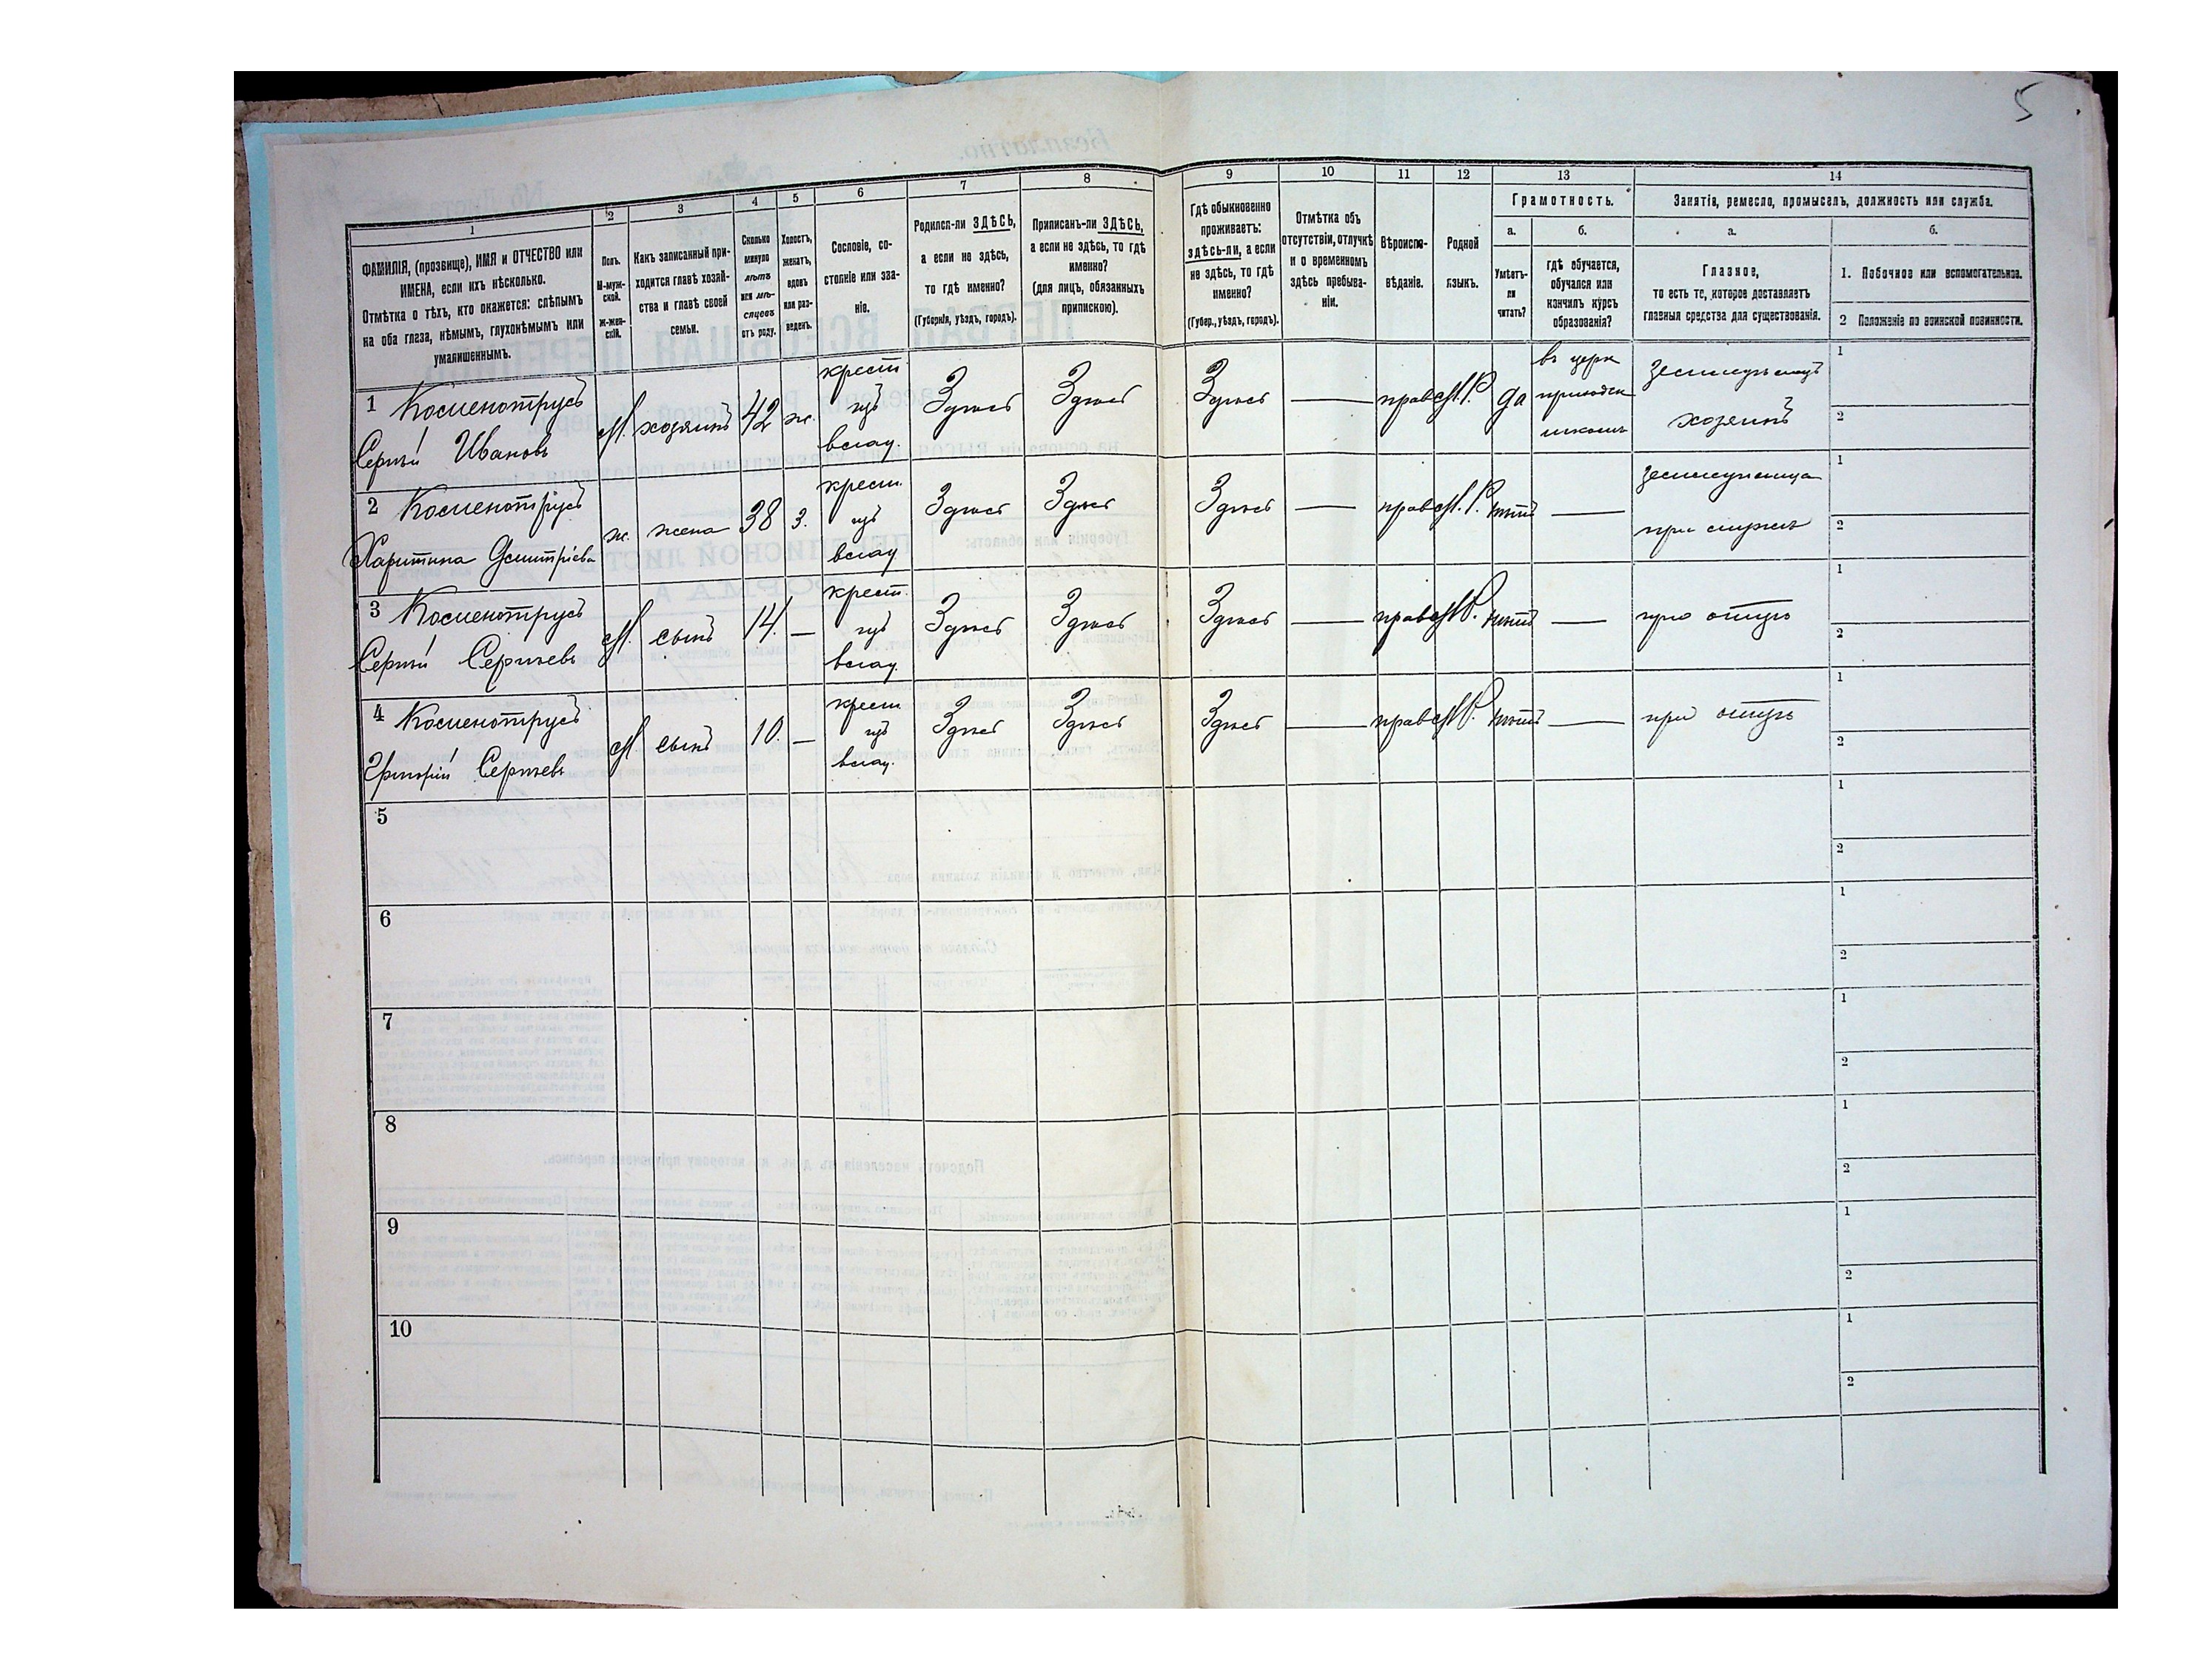 5
1 2 3 4 5 6 7 8 9 10 11 12 13 14
ФАМИЛІЯ, (прозвище), ИМЯ и ОТЧЕСТВО или
ИМЕНА, если ихъ нѣсколько.
Отмѣтка о тѣхъ, кто окажется: слѣпымъ
на оба глаза, нѣмымъ, глухонѣмымъ или
умалишеннымъ.
Полъ.
М-муж-
ской.
Ж-жен-
скій.
Какъ записанный при-
ходится главѣ хозяй-
ства и главѣ своей
семьи.
Сколько
минуло
лѣтъ
или мѣ-
сяцевъ
отъ роду.
Холостъ,
женатъ,
вдовъ
или раз-
веденъ.
Сословіе, со-
стояніе или зва-
ніе.
Родился-ли ЗДѢСЬ,
а если не здѣсь,
то гдѣ именно?
(Губернія, уѣздъ, городъ).
Приписанъ-ли ЗДѢСЬ,
а если не здѣсь, то гдѣ
именно?
(для лицъ, обязанныхъ
припискою).
Гдѣ обыкновенно
проживаетъ:
здѣсь-ли, а если
не здѣсь, то гдѣ
именно?
(Губер., уѣздъ, городъ).
Отмѣтка объ
отсутствіи, отлучкѣ
и о временномъ
здѣсь пребыва-
ніи.
Вѣроиспо-
вѣданіе.
Родной
языкъ.
Грамотность.
а.
Умѣетъ-
ли
читать?
б.
гдѣ обучается,
обучался или
кончилъ курсъ
образованія?
Занятіе, ремесло, промыселъ, должность или служба.
а.
Главное,
то есть то, которое доставляетъ
главныя средства для существованія.
б.
1. Побочное или вспомогательное.
2 Положеніе по воинской повинности.
1 Косменотрусъ
Сергѣй Ивановъ
М. хозяинъ 42 ж.
крест
изъ
влад.
Здѣсь Здѣсь Здѣсь — прав М.Р. да
въ церк
приходск
школѣ
хозяинъ
1
2
2 Косменотрусъ
Харитина Дмитріева
ж. жена 38 з.
крест.
изъ
влад
Здѣсь Здѣсь Здѣсь — прав М.Р. нѣтъ —
при мужѣ
1
2
3 Косменотрусъ
Сергѣй Сергѣевъ
М. сынъ 14. —
крест.
изъ
влад.
Здѣсь Здѣсь Здѣсь — прав М.Р. нѣтъ — при отцѣ
1
2
4 Косменотрусъ
Григорій Сергѣевъ
М. сынъ 10. —
крест
изъ
влад.
Здѣсь Здѣсь Здѣсь — прав М.Р. нѣтъ — при отцѣ
1
2
5
1
2
6
1
2
7
1
2
8
1
2
9
1
2
10
1
2